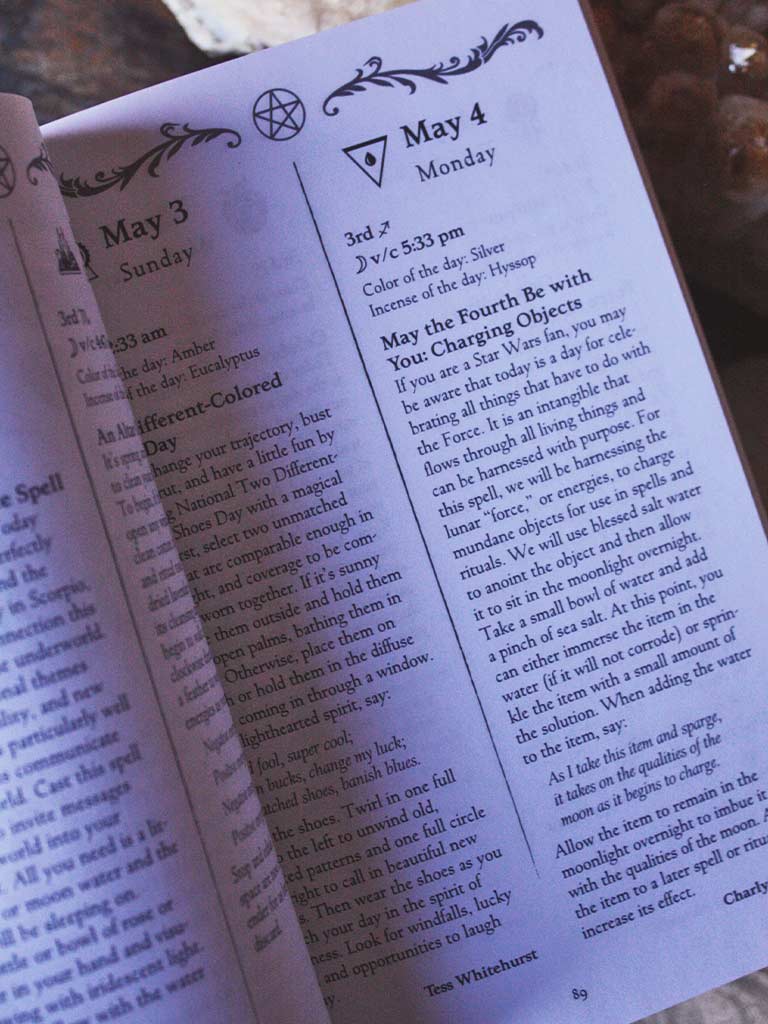 e Spell
oday
erfectly
nd the
y in Scorpio,
nnection this
e underworld.
nal themes
lity, and new
particularly well
communicate
eld. Cast this spell
invite messages
world into your
All you need is a lit-
or moon water and the
ll be sleeping on.
ttle or bowl of rose or
in your hand and visu-
ing with iridescent light.
ow with the water
3rd
v/c
Color of
Incense of
An Alta
It's spring
to clean
To begin
open
clean
and
dried
its cleans
begin
clockwise
a feather
energies
Negative
Positive
Negative
Positive
Soap and
space are
ender for a
discard.
May 3
Sunday
:33 am
the day: Amber
of the day: Eucalyptus
ifferent-Colored
Day
hange your trajectory, bust
rut, and have a little fun by
g National Two Different-
Shoes Day with a magical
rst, select two unmatched
at are comparable enough in
ht, and coverage to be com-
worn together. If it's sunny
them outside and hold them
open palms, bathing them in
Otherwise, place them on
or hold them in the diffuse
coming in through a window.
lighthearted spirit, say:
fool, super cool;
n bucks, change my luck;
tched shoes, banish blues.
the shoes. Twirl in one full
the left to unwind old,
ed patterns and one full circle
ight to call in beautiful new
s. Then wear the shoes as you
h your day in the spirit of
ness. Look for windfalls, lucky
and opportunities to laugh
y.
Tess Whitehurst
May 4
Monday
3rd ♐
☽ v/c 5:33 pm
Color of the day: Silver
Incense of the day: Hyssop
May the Fourth Be with
You: Charging Objects
If you are a Star Wars fan, you may
be aware that today is a day for cele-
brating all things that have to do with
the Force. It is an intangible that
flows through all living things and
can be harnessed with purpose. For
this spell, we will be harnessing the
lunar "force," or energies, to charge
mundane objects for use in spells and
rituals. We will use blessed salt water
to anoint the object and then allow
it to sit in the moonlight overnight.
Take a small bowl of water and add
a pinch of sea salt. At this point, you
can either immerse the item in the
water (if it will not corrode) or sprin-
kle the item with a small amount of
the solution. When adding the water
to the item, say:
As I take this item and sparge,
it takes on the qualities of the
moon as it begins to charge.
Allow the item to remain in the
moonlight overnight to imbue it
with the qualities of the moon. A
the item to a later spell or ritu
increase its effect.
Charly
89